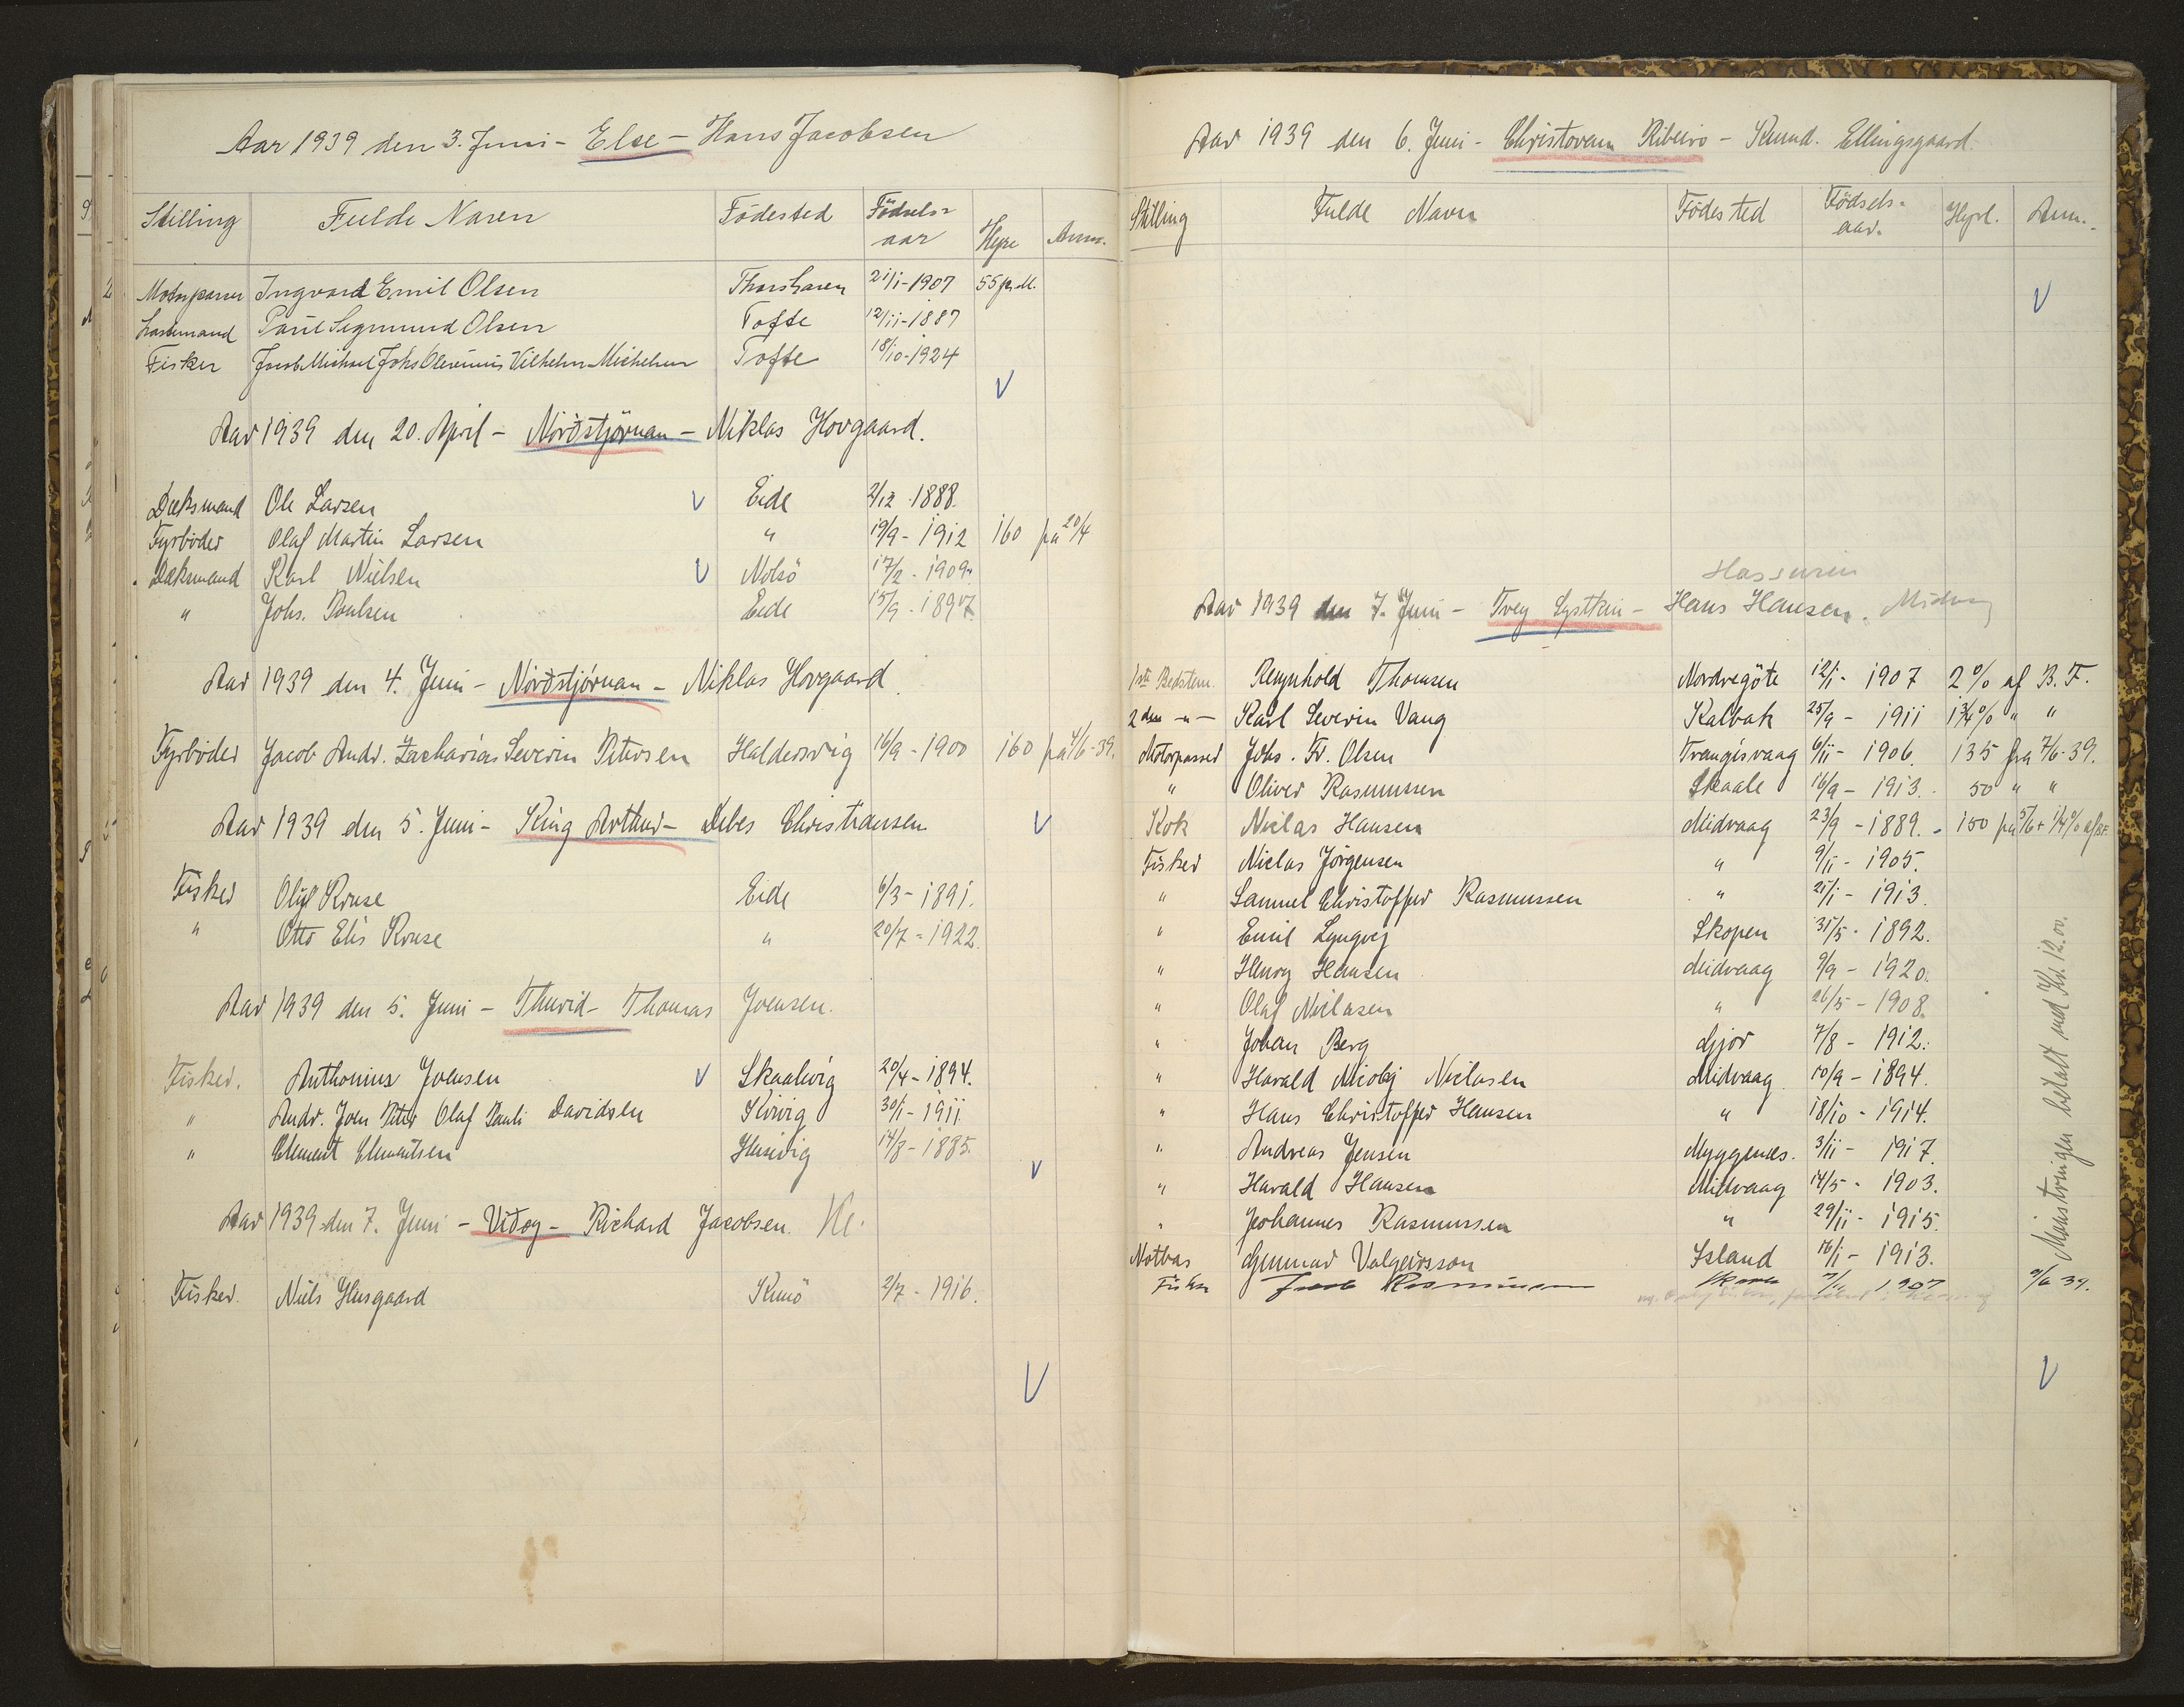 Aar 1939 den 3. Juni - Else - Hans Jacobsen
Stilling Fulde Navn Födested Födselsaar Hyre Anm.
Motorpasser Ingvard Emil Olsen Thorshavn 21/1-1907 55 pr. M.
Paul Sigmund Olsen Tofte 12/11-1887
Fisker Jacob Michael Johs Vilhelm Michelsen Tofte 18/10-1924
Aar 1939 den 20. April - Norðstjörnan - Niklas Hovgaard.
Dæksmand Ole Larsen Eide 2/12-1888.
Fyrböder Olaf Martin Larsen " 19/9-1912 160 fra 20/4
Dæksmand Karl Nielsen Nolsö 17/2-1909.
" Johs. Poulsen Eide 15/9-1897.
Aar 1939 den 4. Juni - Norðstjórnan - Niklas Hovgaard.
Fyrböder Jacob Andr. Zacharias Severin Petersen Haldersvig 16/9-1900 160 fra 4/6-39.
Aar 1939 den 5. Juni - King Arthur - Debes Christiansen
Fisker Oluf Kruse Eide 6/3-1891.
" Otto Elis Kruse " 20/7-1922.
Aar 1939 den 5. Juni - Thurid - Thomas Joensen.
Fisker. Anthonius Joensen Skaalevig 20/4-1894.
" Andr. Joen Peter Olaf Pauli Davidsen Kirvig 30/1-1911
" Clement Clementsen Husevig 14/8-1885.
Aar 1939 den 7. Juni - Viðoy - Richard Jacobsen. Kl.
Fisker. Niels Husgaard Kunö 2/7-1916.
Aar 1939 den 6. Juni - Christovam Ribeiro - Kund. Ellingsgaard.
Stilling Fulde Navn Födested Födsels-aar. Hyre. Anm.
Aar 1939 den 7. Juni - Trey Systkin - Hans Hansen.
1ste Bedstem. Reynhold Thomsen Nordregöte 12/1-1907 2% af B.F.
2den -"- Karl Severin Vang Kalbak 25/9-1911 1 3/4% " "
Motorpasser Johs. Fr. Olsen Trangisvaag 6/11-1906. 135 fra 7/6-39.
" Oliver Rasmussen Skaale 16/9-1913. 50 " "
Kok Niclas Hansen Midvaag 23/9-1889. 150 fra 5/6 + 1/4% af B.F.
Fisker Niclas Jörgensen " 9/11-1905.
" Samuel Christoffer Rasmussen " 21/1-1913.
" Emil Lyngvej Skopen 31/5-1892.
" Henry Hansen Midvaag 9/9-1920.
" Olaf Niclasen " 26/5-1908.
" Johan Berg Gjov 7/8-1912.
" Harald Nicolaj Niclasen Midvaag 10/9-1894.
" Hans Christoffer Hansen " 18/10-1914.
" Andreas Jensen Myggenæs. 3/11-1917.
" Harald Hansen Midvaag 14/5-1903.
" Johannes Rasmussen " 29/11-1915.
Notbas Gunnar Valgeirsson Island 16/1-1913.
Fisker Rasmussen 1907 9/6 39.
Mönstringen betalt med Kr. 12.00.